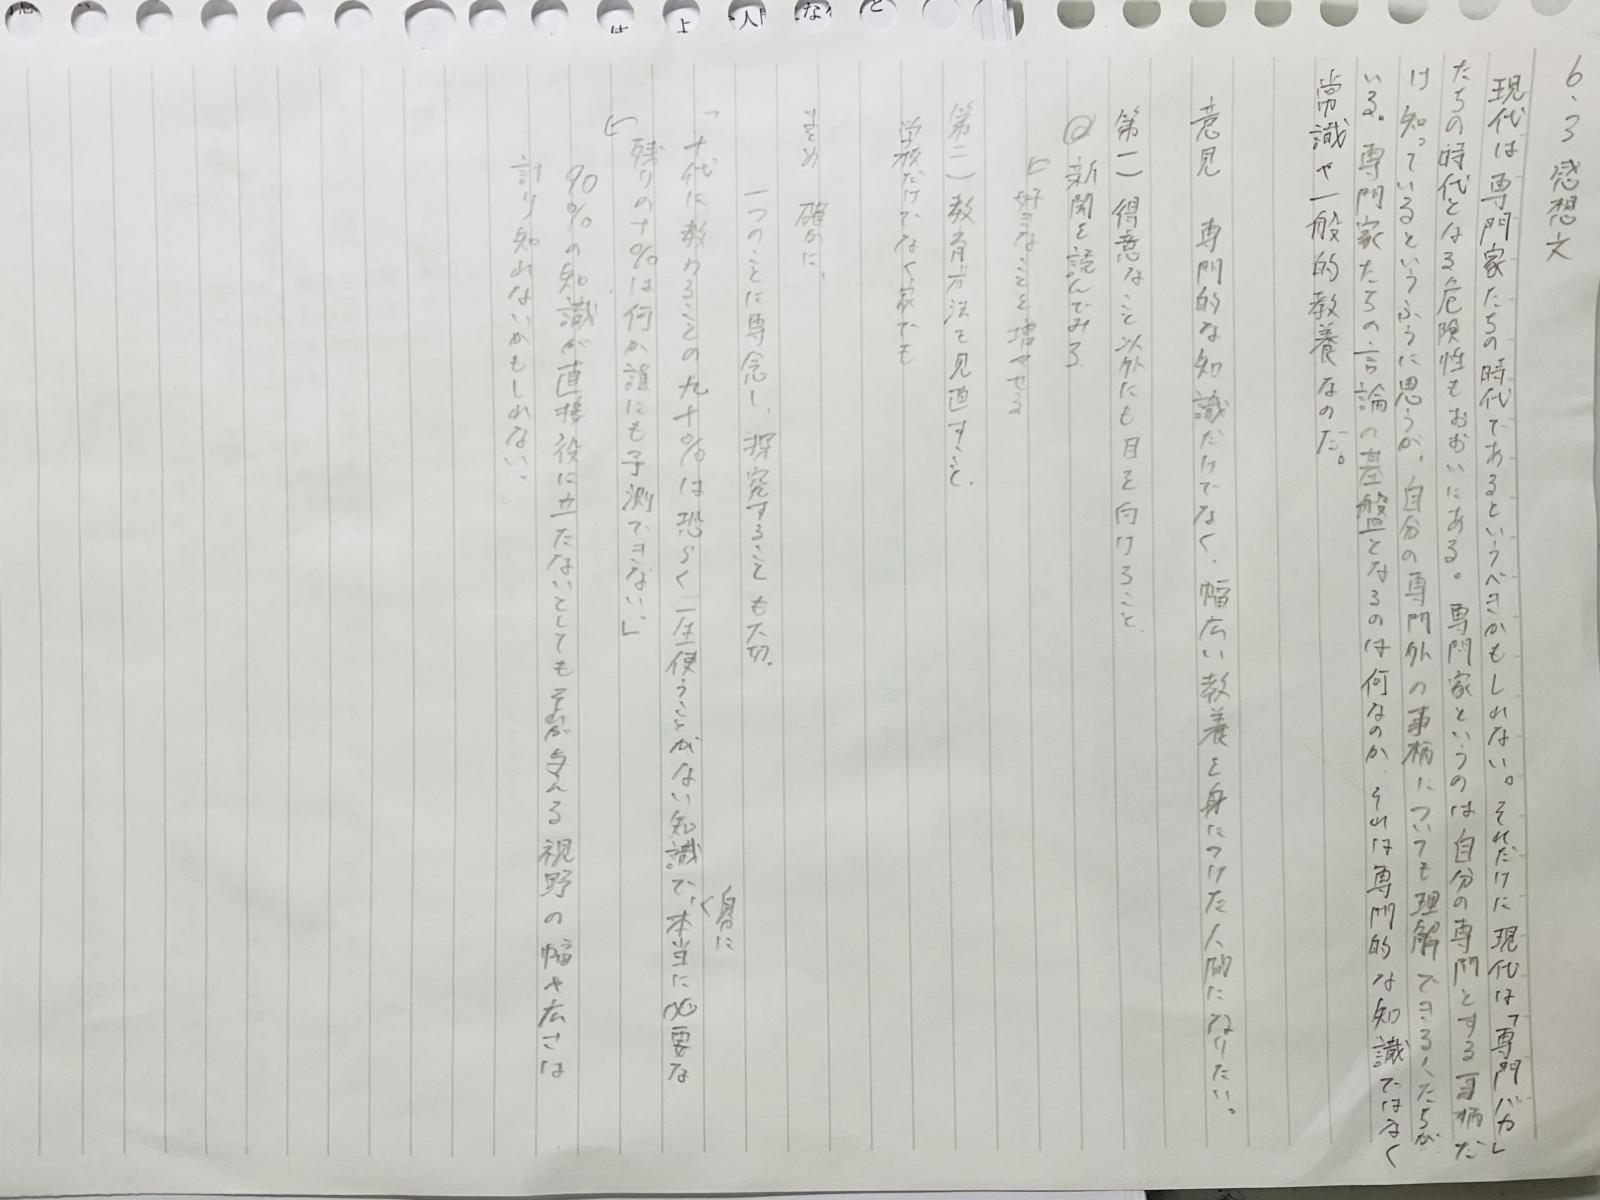 6.3 感想文
現代は専門家たちの時代であるというべきかもしれない。それだけに現代は「専門バカ」
たちの時代となる危険性もおおいにある。専門家というのは自分の専門とする事柄だ
け知っているというふうに思うが、自分の専門外の事柄についても理解できる人たちが
いる。専門家たちの言論の基盤となるのは何なのか、それは専門的な知識ではなく
常識や一般的教養なのだ。
意見 専門的な知識だけでなく、幅広い教養を身につけた人間になりたい。
第一)得意なこと以外にも目を向けること
新聞を読んでみる
好きなことを増やせる
第二)教育方法を見直すこと、
学校だけでなく家でも
まとめ 確かに、
一つのことに専念し、探究することも大切。
「十代に教わることの九十%は恐らく一生使うことがない知識で、本当に必要な
身に
残りの十%は何か誰にも予測できない」
90%の知識が直接役に立たないとしてもそれが与える視野の幅や広さは
計り知れないかもしれない、